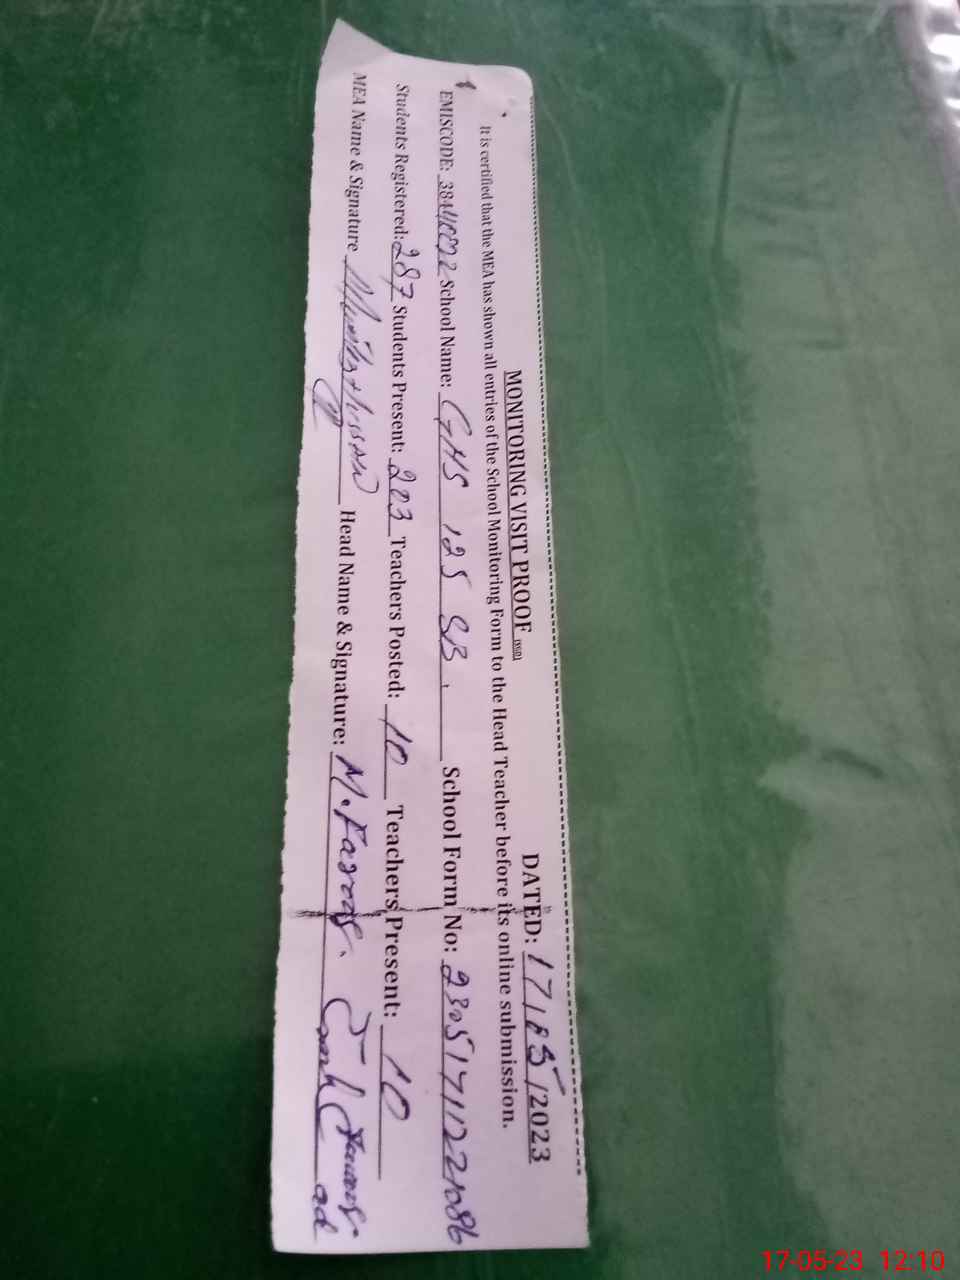 MONITORING VISIT PROOF
DATED: 17/05/2023
It is certified that the MEA has shown all entries of the School Monitoring Form to the Head Teacher before its online submission.
EMISCODE: School Name: GHS 125 SB. School Form No:
Students Registered: 287 Students Present: 203 Teachers Posted: 10 Teachers Present: 10
MEA Name & Signature Head Name & Signature: M. Farooq.
17-05-23 12:10